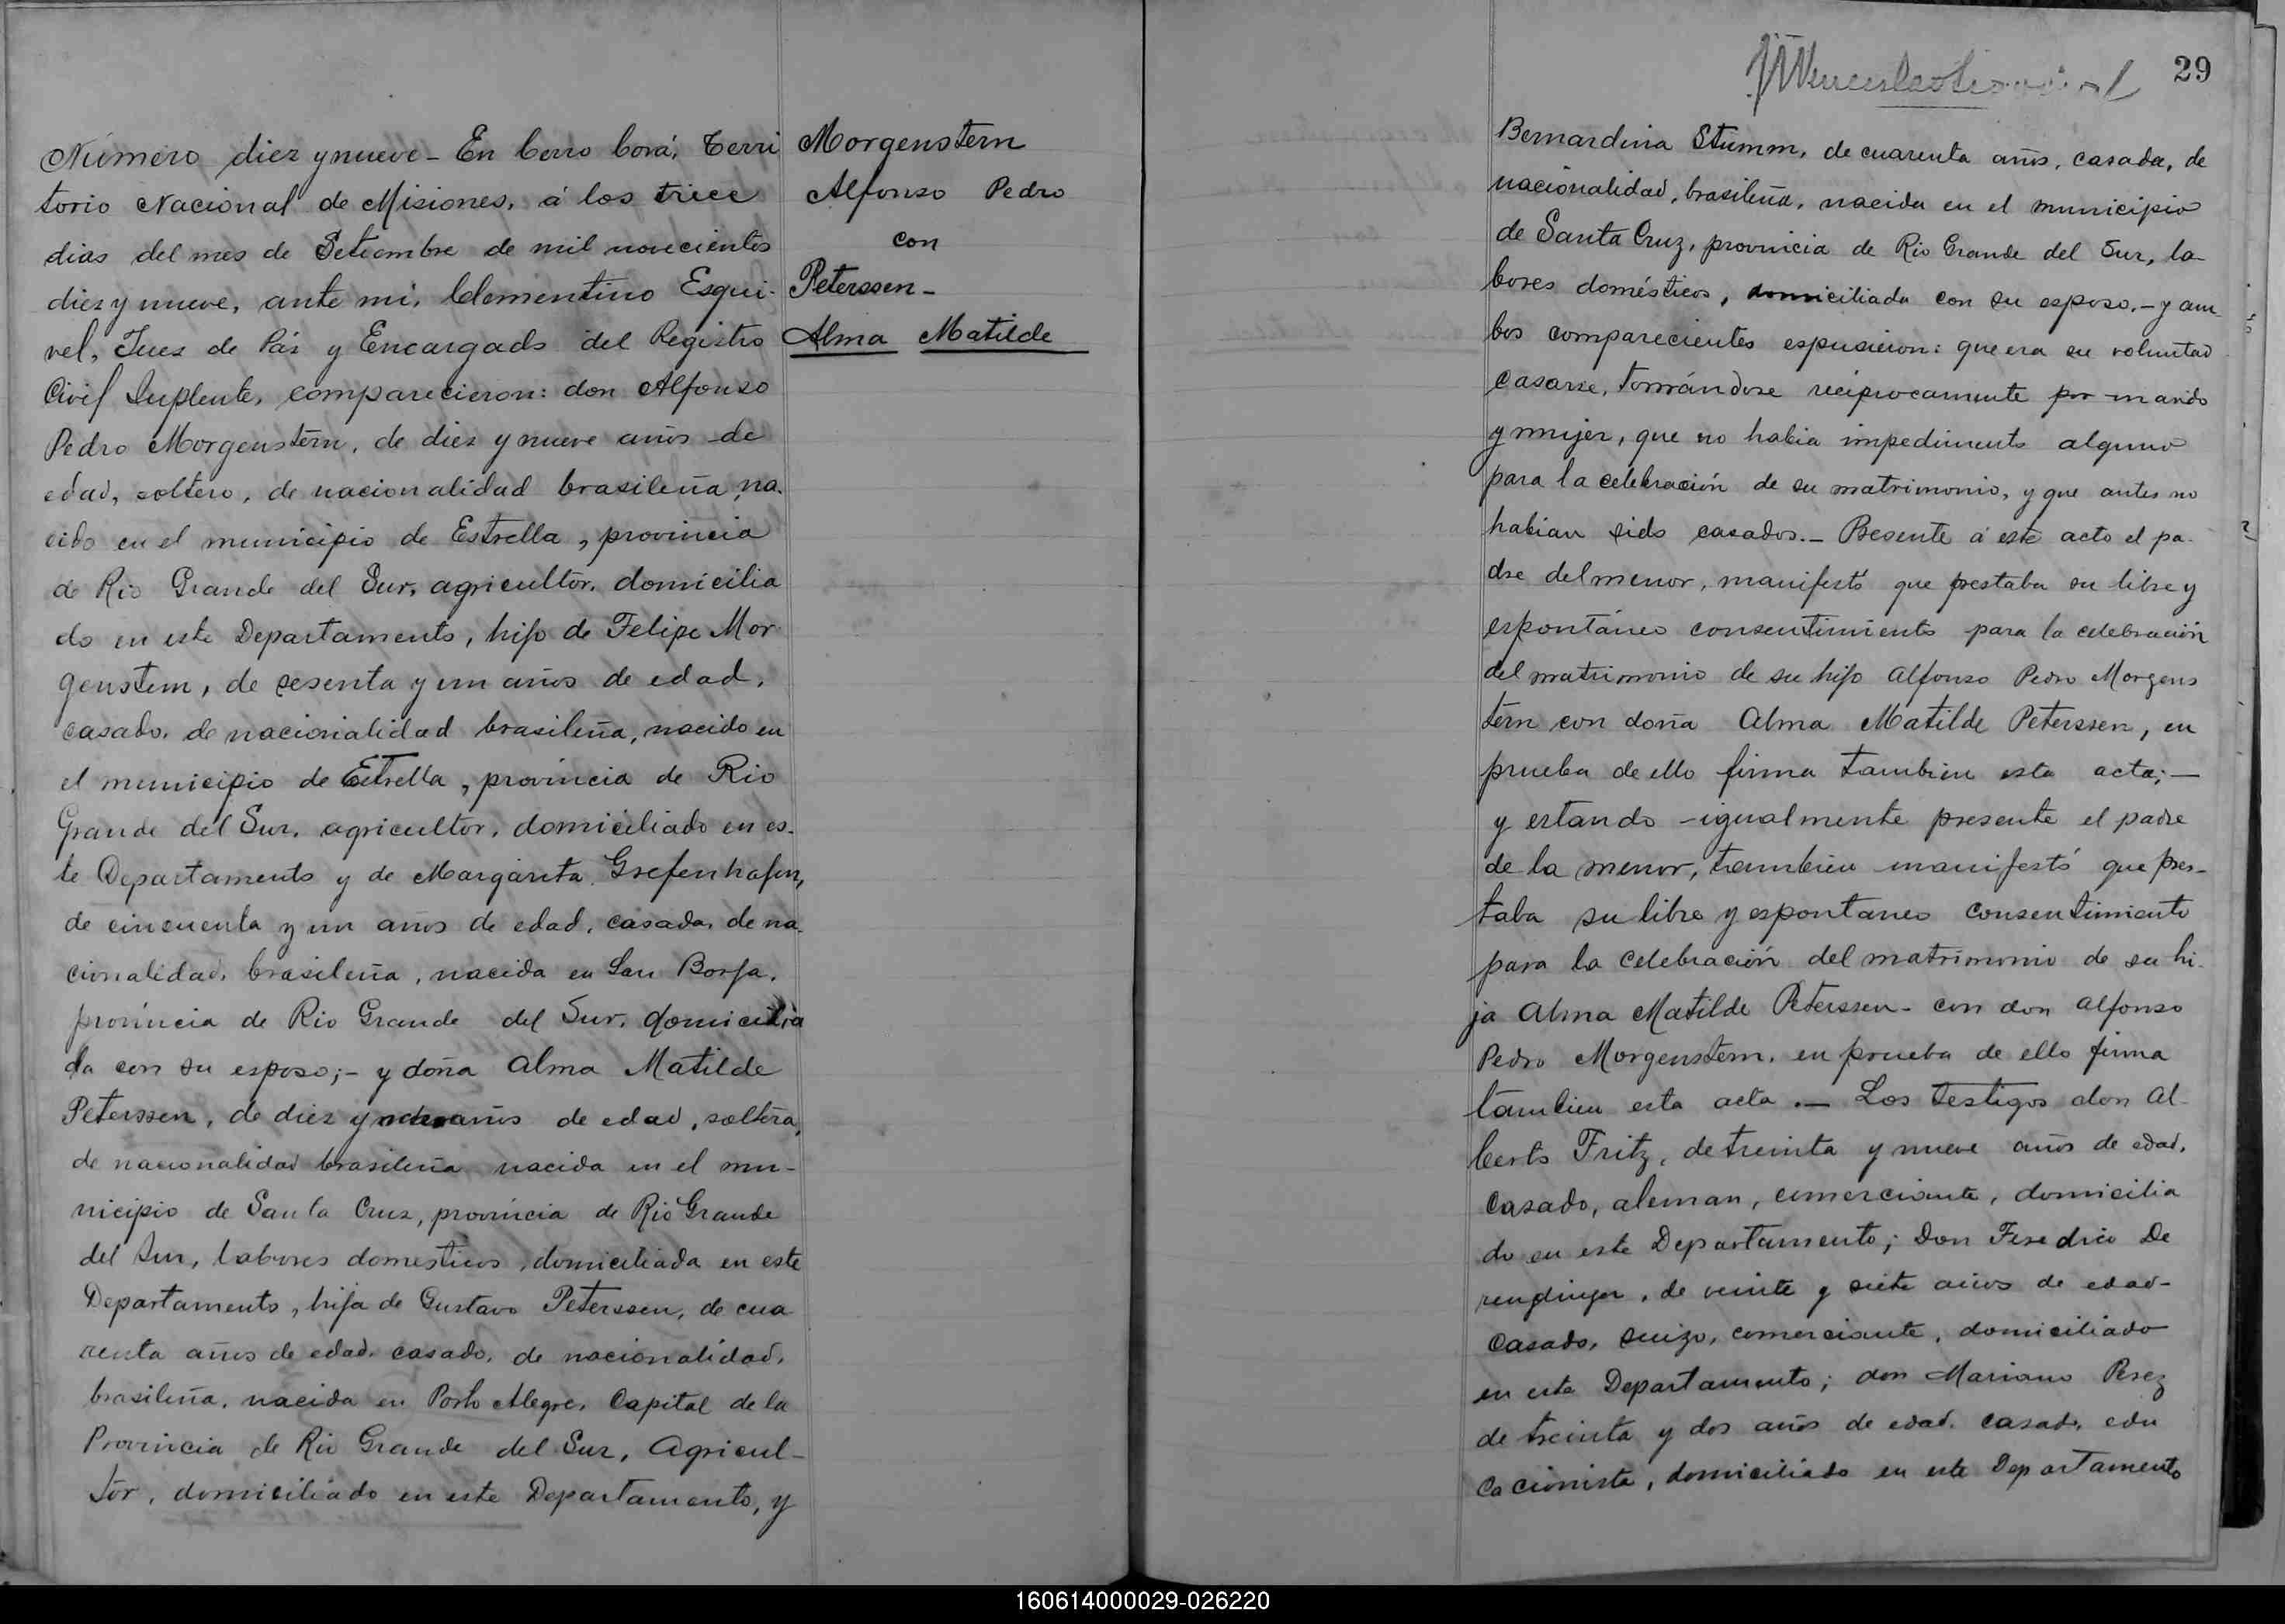 Número diez y nueve - En Cerro Corá, Terri
torio Nacional de Misiones, á los trece
dias del mes de Setiembre de mil novecientos
diez y nueve, ante mi, Clementino Esqui-
vel, Juez de Páz y Encargado del Registro
Civil Suplente, comparecieron: don Alfonso
Pedro Morgenstern, de diez y nueve años de
edad, soltero, de nacionalidad brasileña, na-
cido en el municipio de Estrella, provincia
de Rio Grande del Sur, agricultor, domicilia
do en este Departamento, hijo de Felipe Mor-
genstern, de sesenta y un años de edad,
casado, de nacionialidad brasileña, nacido en
el municipio de Estrella, provincia de Rio
Grande del Sur, agricultor, domiciliado en es-
te Departamento y de Margarita Grefenhafen,
de cincuenta y un años de edad, casada, de na-
cionalidad, brasileña, nacida en San Borja,
provincia de Rio Grande del Sur, domicilia
da con su esposo;- y doña Alma Matilde
Peterssen, de diez y años de edad, soltera,
de nacionalidad brasileña nacida en el mu-
nicipio de Santa Cruz, provincia de Rio Grande
del Sur, labores domesticos, domiciliada en este
Departamento, hija de Gustavo Peterssen, de cua
renta años de edad, casado, de nacionalidad,
brasileña, nacida en Porto Alegre, Capital de la
Provincia de Rio Grande del Sur, Agricul-
tor, domiciliado en este Departamento, y
Morgenstern
Alfonso Pedro
con
Peterssen-
Alma Matilde
29
Bernardina Stumm, de cuarenta años, casada, de
nacionalidad, brasileña, nacida en el municipio
de Santa Cruz, provincia de Rio Grande del Sur, la-
bores domésticos, domiciliada con su esposo.- y am
bos comparecientes espusieron: que era su voluntad
casarse, tomándose recíprocamente por marido
y mujer, que no habia impedimento alguno
para la celebración de su matrimonio, y que antes no
habian sido casados.- Presente á este acto el pa-
dre del menor, manifestó que prestaba su libre y
espontáneo consentimiento para la celebración
del matrimonio de su hijo Alfonso Pedro Morgens
tern con doña Alma Matilde Peterssen, en
prueba de ello firma tambien esta acta;-
y estando igualmente presente el padre
de la menor, tambien manifestó que pres-
taba su libre y espontaneo consentimiento
para la celebración del matrimonio de su hi-
ja Alma Matilde Peterssen- con don Alfonso
Pedro Morgenstern, en prueba de ello firma
tambien esta acta.- Los testigos don Al-
berto Fritz, de treinta y nueve años de edad,
casado, aleman, comerciante, domicilia
do en este Departamento; Don Feredrico De
rendinger, de veinte y siete años de edad-
casado, suizo, comerciante, domiciliado
en este Departamento; don Mariano Perez
de treinta y dos años de edad, casado, edu
cacionista, domiciliado en este Departamento
160614000029-026220